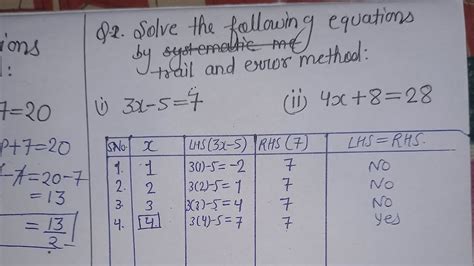 ions
d:
7=20
p+7=20
-7=20-7
=13
=13/2
Q2. Solve the following equations
by systematic me
trail and error method:
i) 3x-5=7
(ii) 4x+8=28
SNo. x LHS(3x-5) RHS(7) LHS=RHS.
1. 1 3(1)-5=-2 7 No
2. 2 3(2)-5=1 7 No
3. 3 3(3)-5=4 7 No
4. 4 3(4)-5=7 7 yes